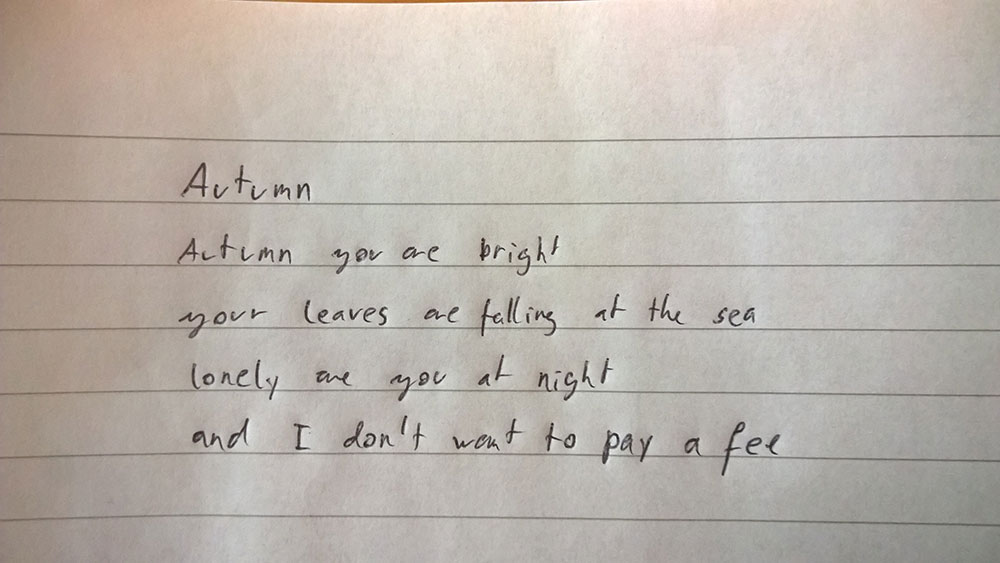 Autumn
Autumn you are bright
your leaves are falling at the sea
lonely are you at night
and I don't want to pay a fee